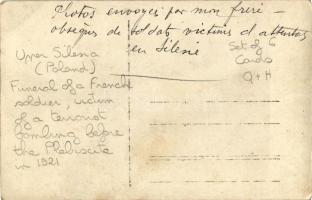 Photos envoyées par mon frère -
obsèques de soldats victimes d'attentats
en Silésie
Upper Silesia
(Poland)
Funeral of a French
soldier, vicium
of a terrorist
bombing before
the Plebiscite
in 1921
Set of 6
Cards
Q + H